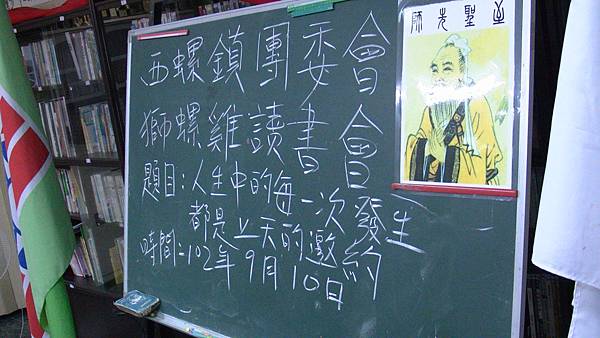 西螺鎮團委會
獅螺雞讀書會
題目:人生中的每一次發生
都是上天的邀約
時間:102年9月10日
師聖先至